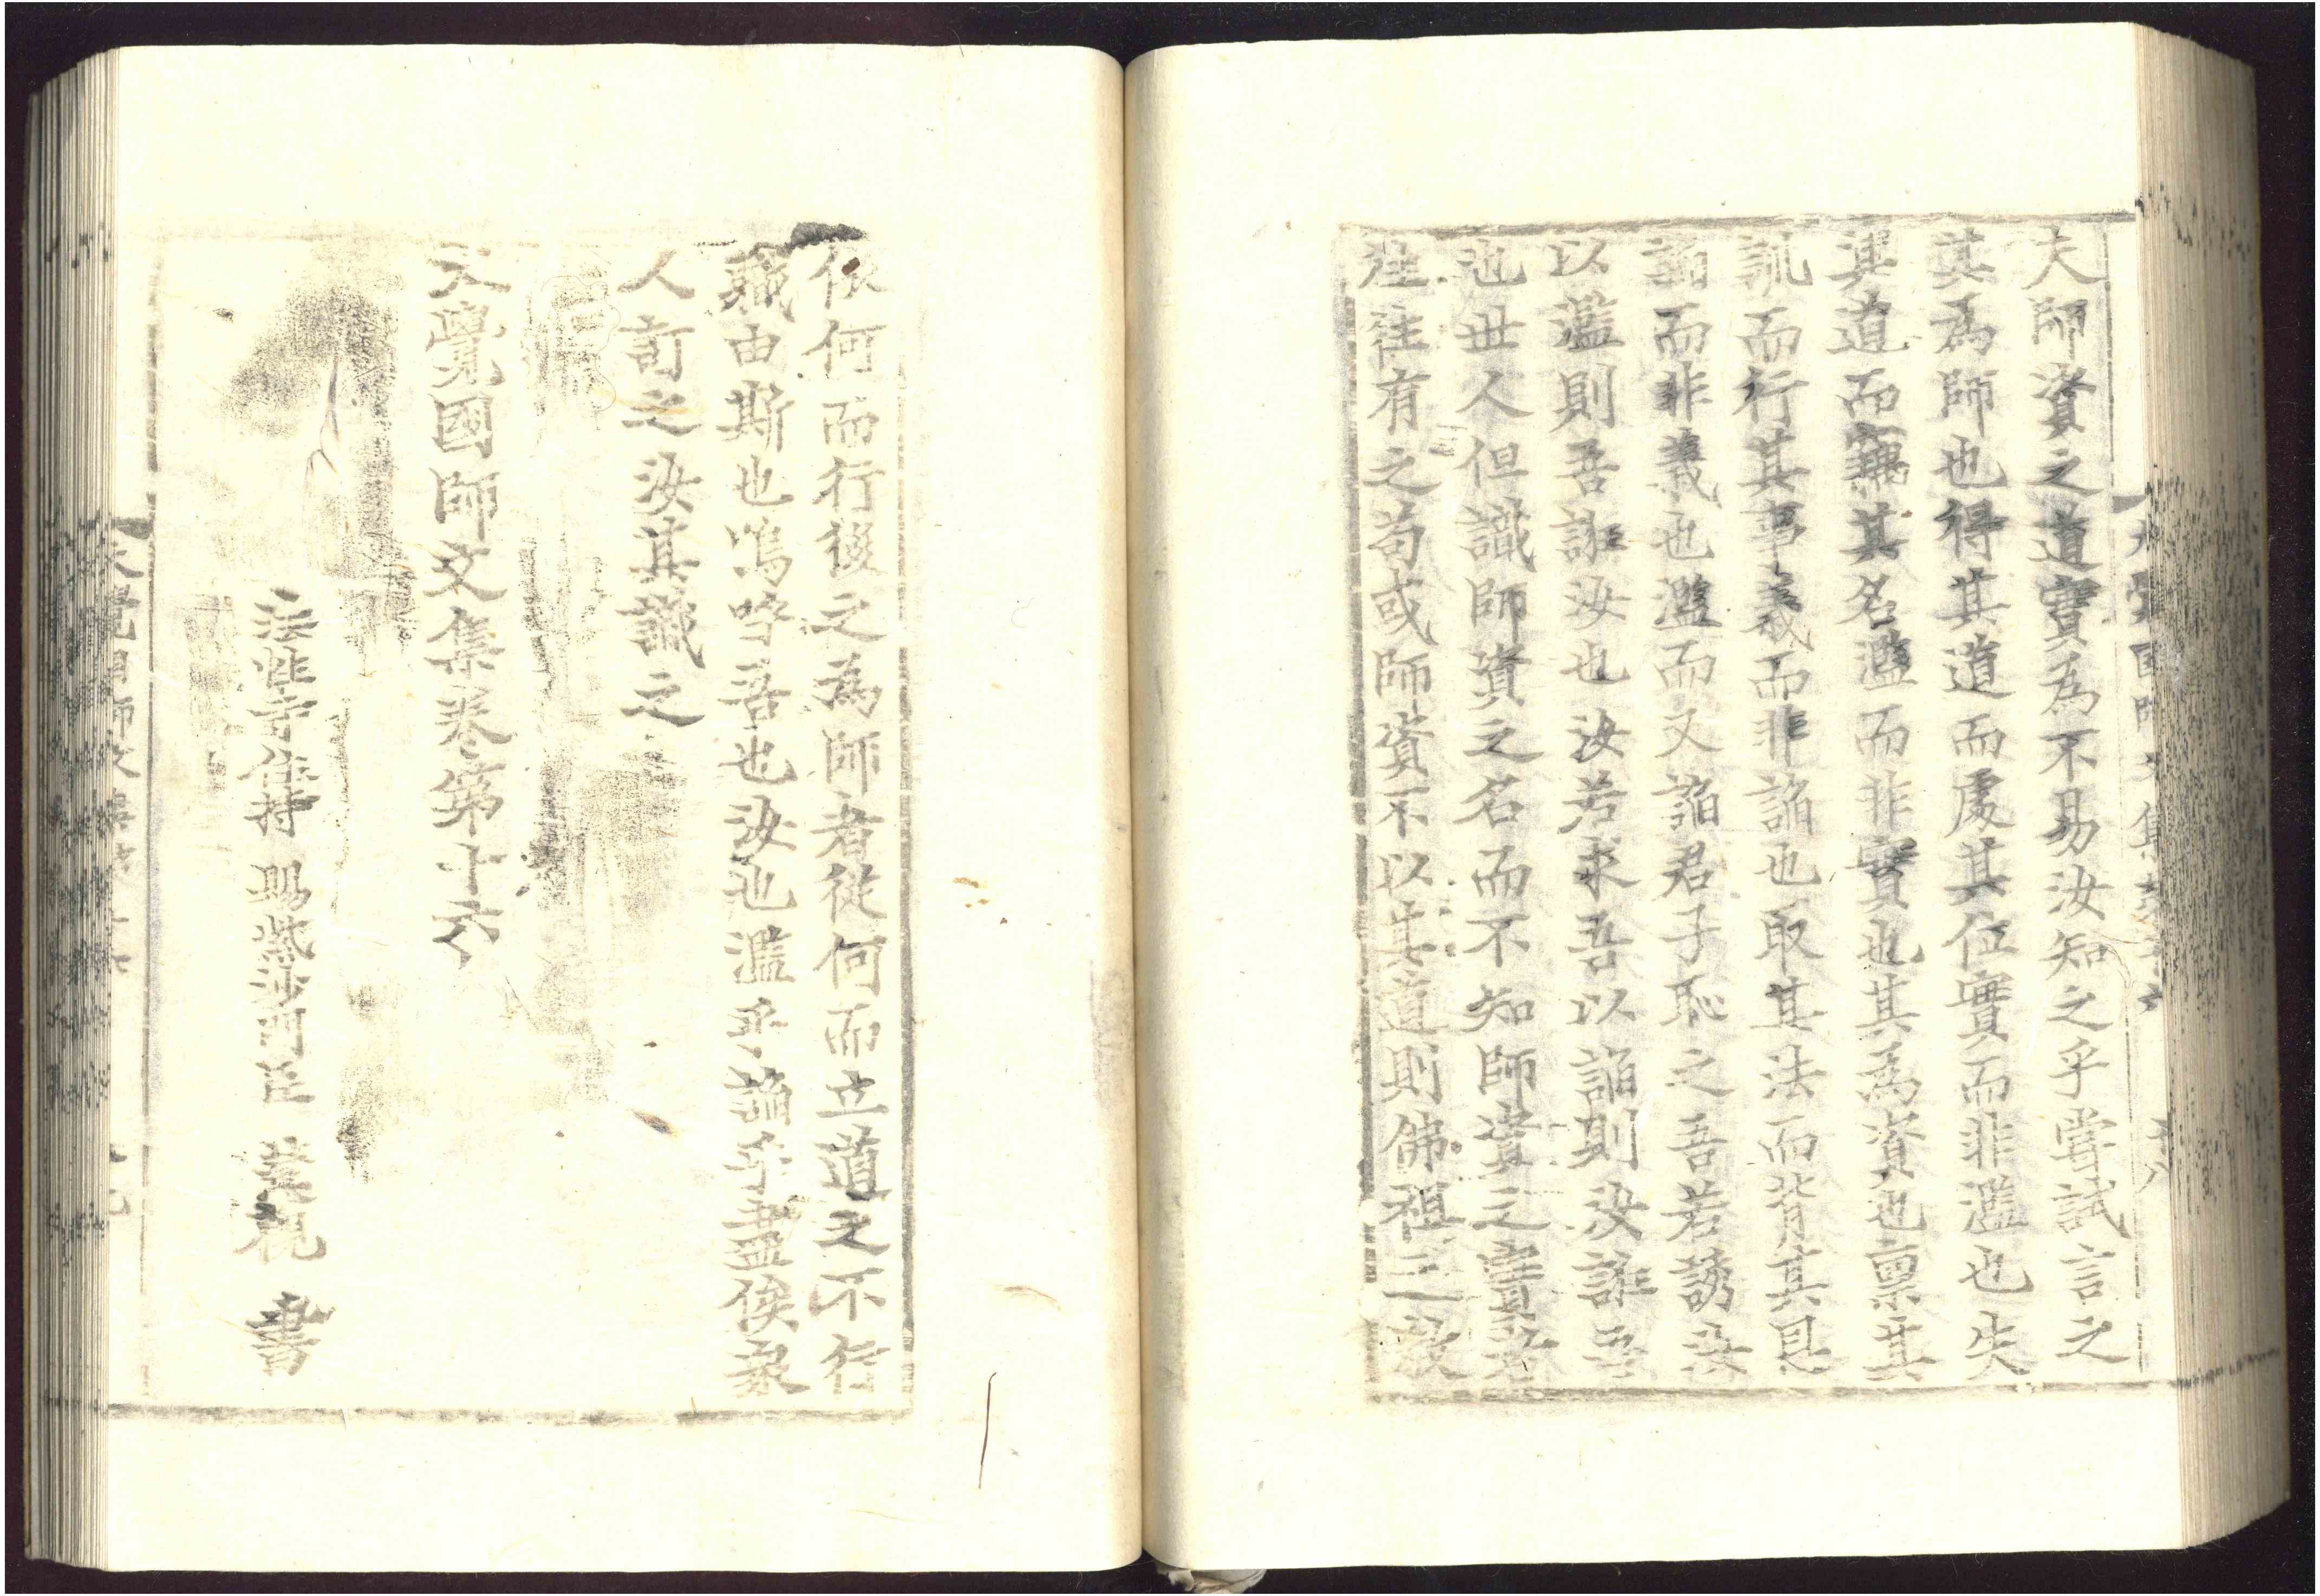 大覺國師文集卷第十六 十八
夫師資之道寔為不易汝知之乎嘗試言之
其為師也得其道而處其位實而非濫也失
其道而竊其名濫而非實也其為資也禀其
訓而行其事義而非諂也取其法而背其恩
諂而非義也濫而又諂君子恥之吾若誘汝
以濫則吾誑汝也汝若求吾以諂則汝誑吾
也世人但識師資之名而不知師資之實者
往往有之苟或師資不以其道則佛祖之教
依何而行後之為師者從何而立道之不行
職由斯也嗚呼吾也汝也濫乎諂乎盡俟衆
人訂之汝其識之
大覺國師文集卷第十六
寺住持 賜紫沙門臣 書
大覺國師文集卷第十六